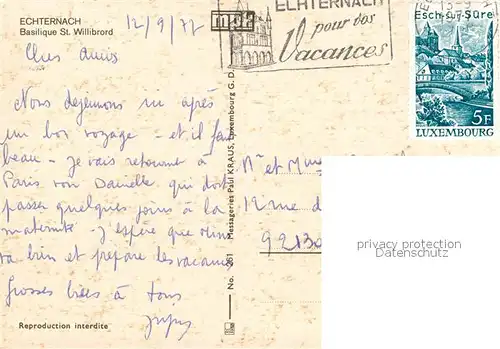 ECHTERNACH
Basilique St. Willibrord
12/9/77
Chers amis
Nous déjeunons ici après
un bon voyage - et il fait
beau - Je vais retourner à
Paris voir Danielle qui doit
passer quelques jours à la
maternité - J'espère que
va bien et prépare les vacances
Grosses bises à tous
Reproduction interdite
No. 261 Messageries Paul KRAUS, Luxembourg G. D.
ECHTERNACH
pour vos
Vacances
Esch-sur-Sûre
5F
LUXEMBOURG
Mr et Mme
12 rue d
92130
privacy protection
Datenschutz